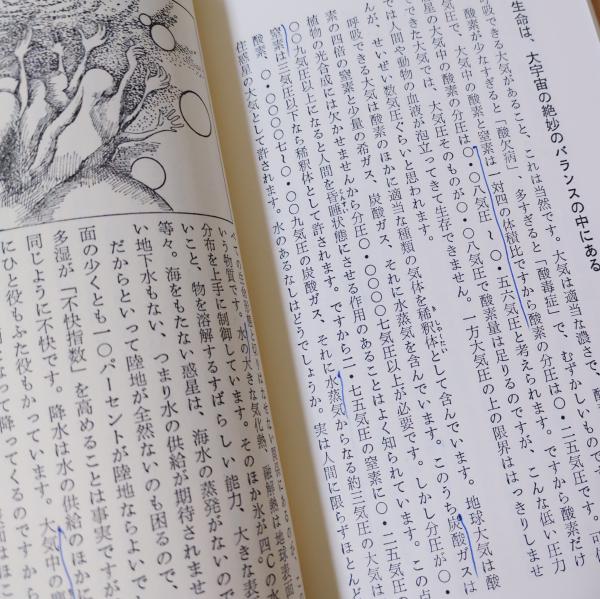 生命は、大宇宙の絶妙のバランスの中にある
呼吸できる大気があること、これは当然です。大気は適当な濃さで、酸
酸素が少なすぎると「酸欠病」、多すぎると「酸毒症」で、むずかしいもので
圧で、大気中の酸素の分圧は〇・〇八気圧〜〇・五六気圧と考えられます。
大気中の酸素と窒素は一対四の体積比ですから酸素の分圧は〇・二五気圧です。可
できた大気では、大気圧そのものが〇・〇八気圧で酸素量は足りるのですが、こんな低い圧力
では人間や動物の血液が泡立ってきて生存できません。一方大気圧の上の限界ははっきりしませ
んが、せいぜい数気圧ぐらいと思われます。
呼吸できる大気は酸素のほかに適当な種類の気体を稀釈体として含んでいます。地球大気は酸
素の四倍の窒素と少量の希ガス、炭酸ガス、それに水蒸気を含んでいます。このうち炭酸ガスは
植物の光合成には欠かせませんから分圧〇・〇〇〇〇七気圧以上が必要です。しかし分圧が〇・
〇〇九気圧以上にもなると人間を昏睡状態にさせる作用のあることはよく知られています。この点
窒素は三気圧以下なら稀釈体として許されます。ですから二・七五気圧の窒素に〇・二五気圧の
酸素、〇・〇〇〇〇七〜〇・〇〇九気圧の炭酸ガス、それに水蒸気からなる約三気圧の大気は
住惑星の大気として許されます。水のあるなしはどうでしょうか。実は人間に限らずほとんど
いう物質です。水の大きな気化熱、融解熱は地球表面
分布を上手に制御しています。そのほか水が四。Cの水
いこと、物を溶解するすばらしい能力、大きな表
等々。海をもたない惑星は、海水の蒸発がないので
い地下水もない、つまり水の供給が期待されませ
だからといって陸地が全然ないのも困るので、
面の少くとも一〇パーセントが陸地ならよいで
多湿が「不快指数」を高めることは事実ですが
同じように不快です。降水は水の供給のほかに
にひと役もふた役もかっています。大気中の塵
なって降ってくるのです